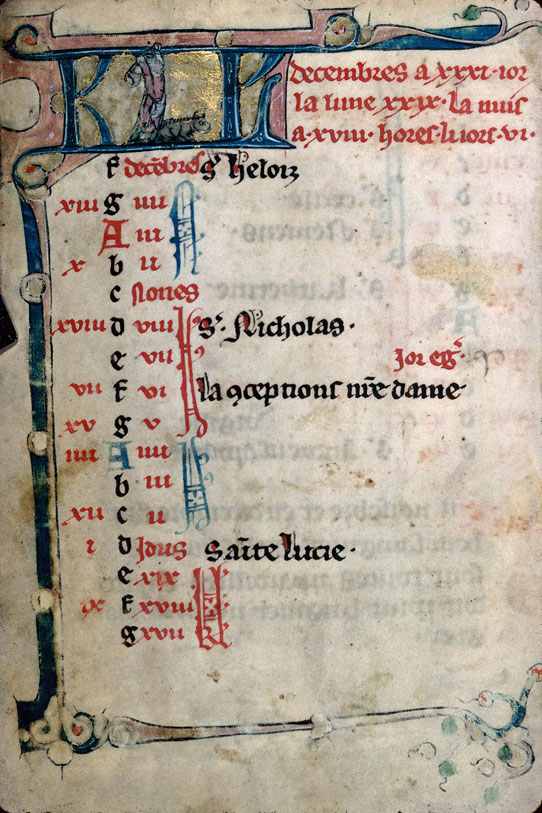 KL
decembres a xxxi · ior
la lune xxix · la nuis
a · xviii · hores · li iors · vi ·
f decēbres s' heloiz
xiii g iiii N
A iii
x b ii
c Nones
xviii d viii Id s' Nicholas ·
e vii Ior eg'
vii f vi la ꝯceptions nr̄e dame
xv g v
iiii A iiii Id
b iii
xii c ii
i d Idus saīte lucie ·
e xix kl
ix f xviii
g xvii